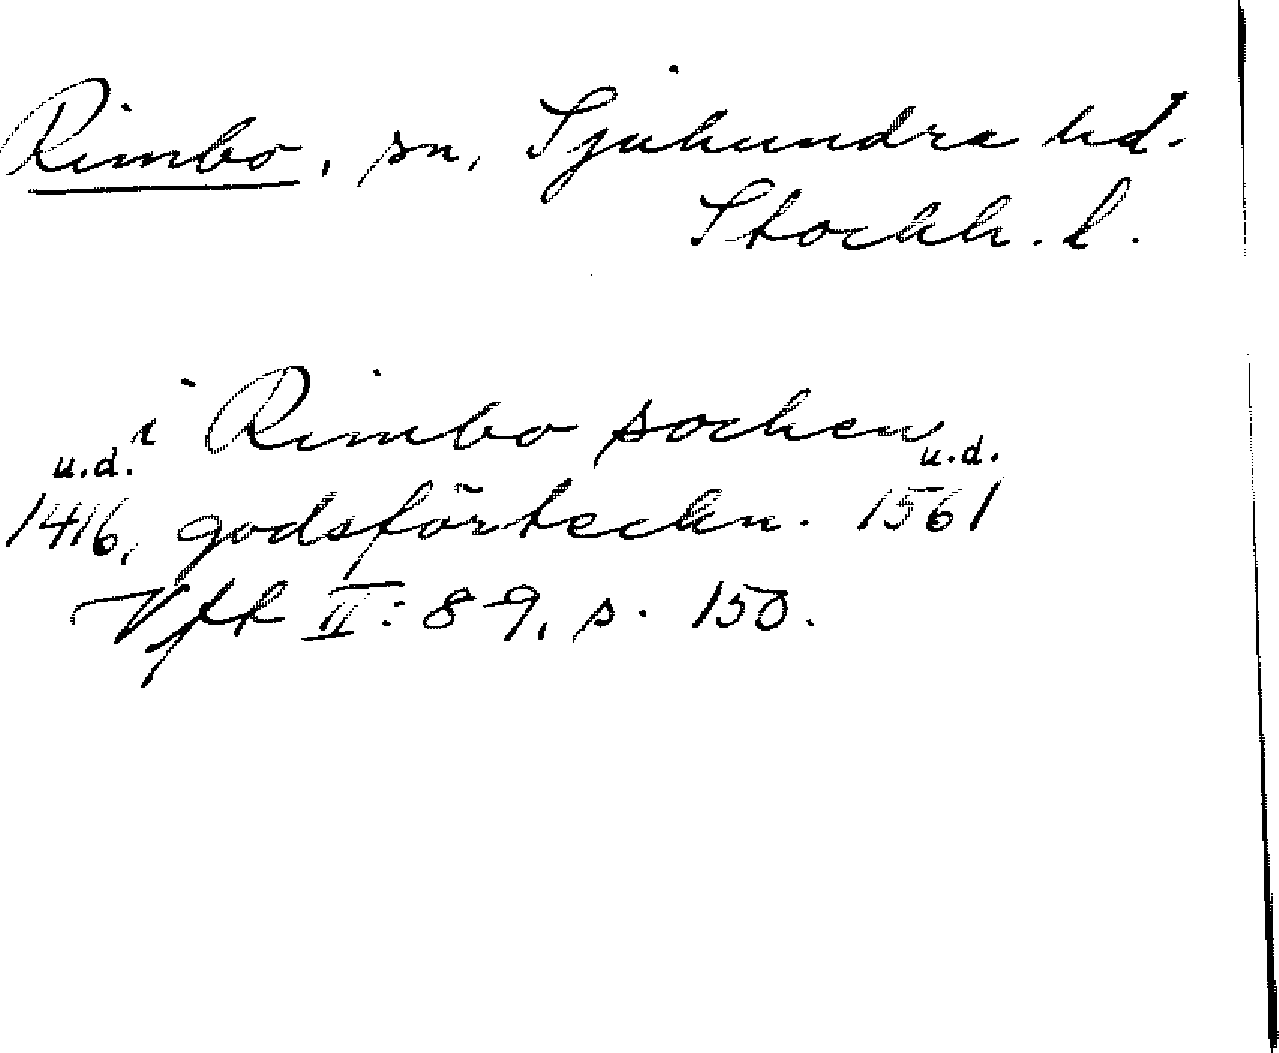 Rimbo, sn, Sjuhundra hd.
Stockh. l.
i Rimbo sochen
u.d. u.d.
1416, godsförteckn. 1561
Vfk II: 8-9, s. 150.